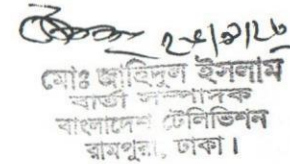 ২৫/১/২৩
মোঃ জাহিদুল ইসলাম
বার্তা সম্পাদক
বাংলাদেশ টেলিভিশন
রামপুরা, ঢাকা।